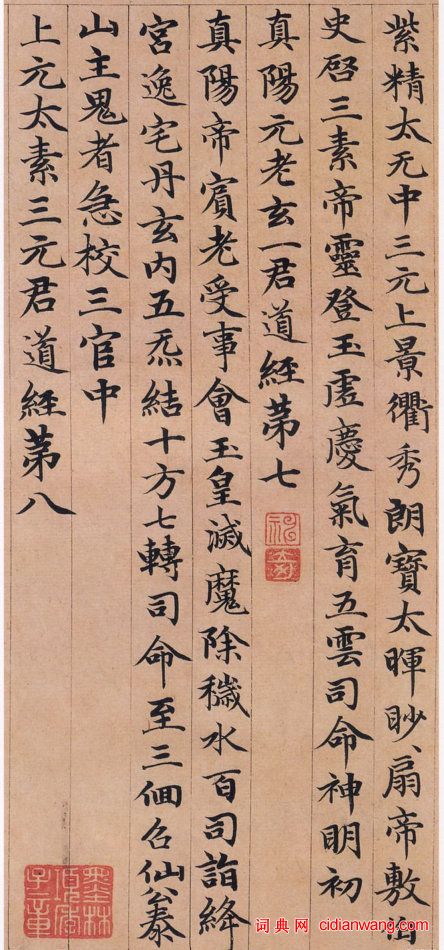 紫精太无中三元上景衢秀朗寶太暉眇、扇帝敷
史啓三素帝靈登玉虛慶氣育五雲司命神明初
真陽元老玄一君道經第七
真陽帝賓老受事會玉皇滅魔除穢水百司詣絳
宮逸宅丹玄内五炁結十方七轉司命至三佪名仙公泰
山主鬼者急校三官中
上元太素三元君道經第八
墨林項季子章
词典网 cidianwang.com